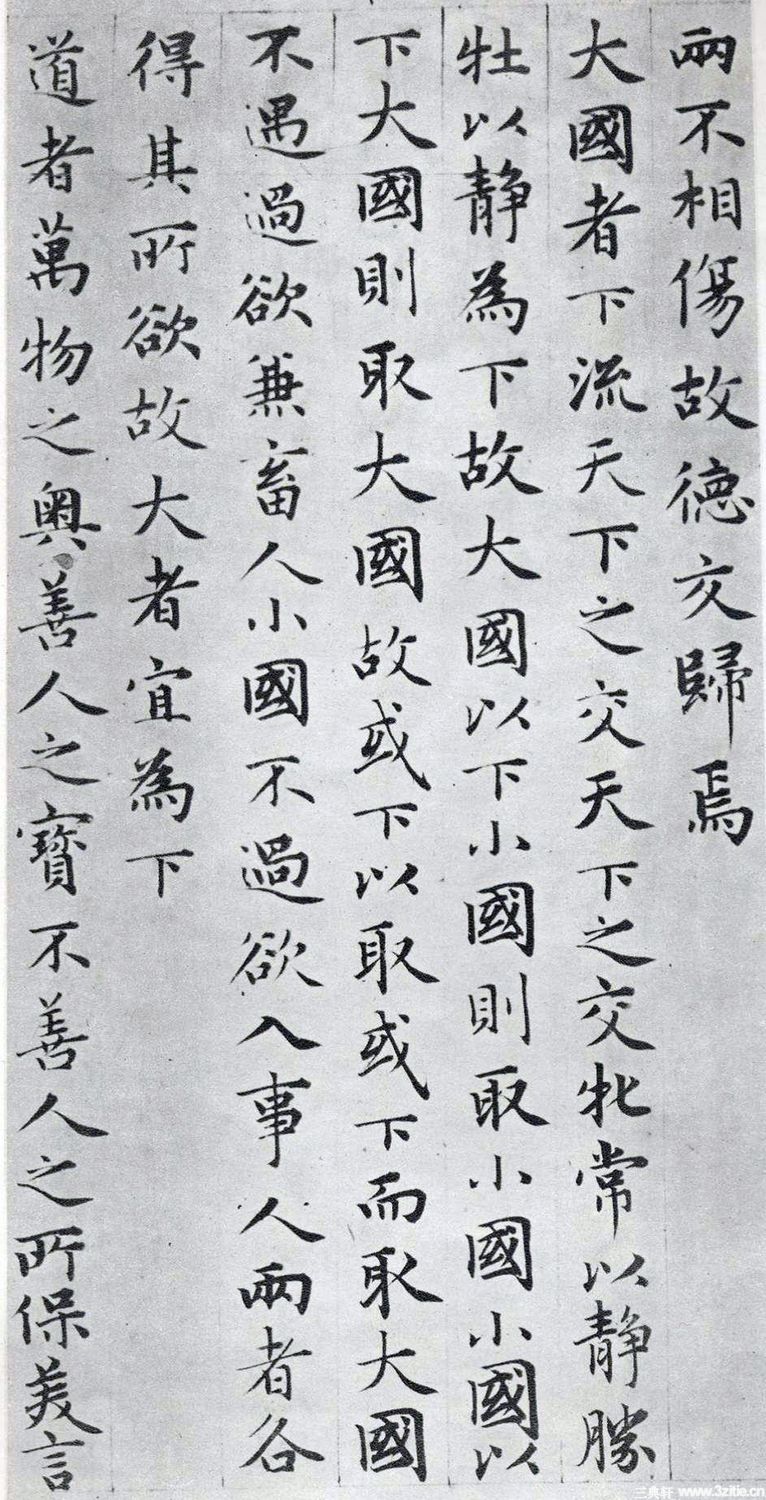 兩不相傷故德交歸焉
大國者下流天下之交天下之交牝常以静勝
牡以静為下故大國以下小國則取小國小國以
下大國則取大國故或下以取或下而取大國
不遇過欲兼畜人小國不過欲入事人兩者各
得其所欲故大者宜為下
道者萬物之奥善人之寶不善人之所保美言
三典轩 www.3zitie.cn